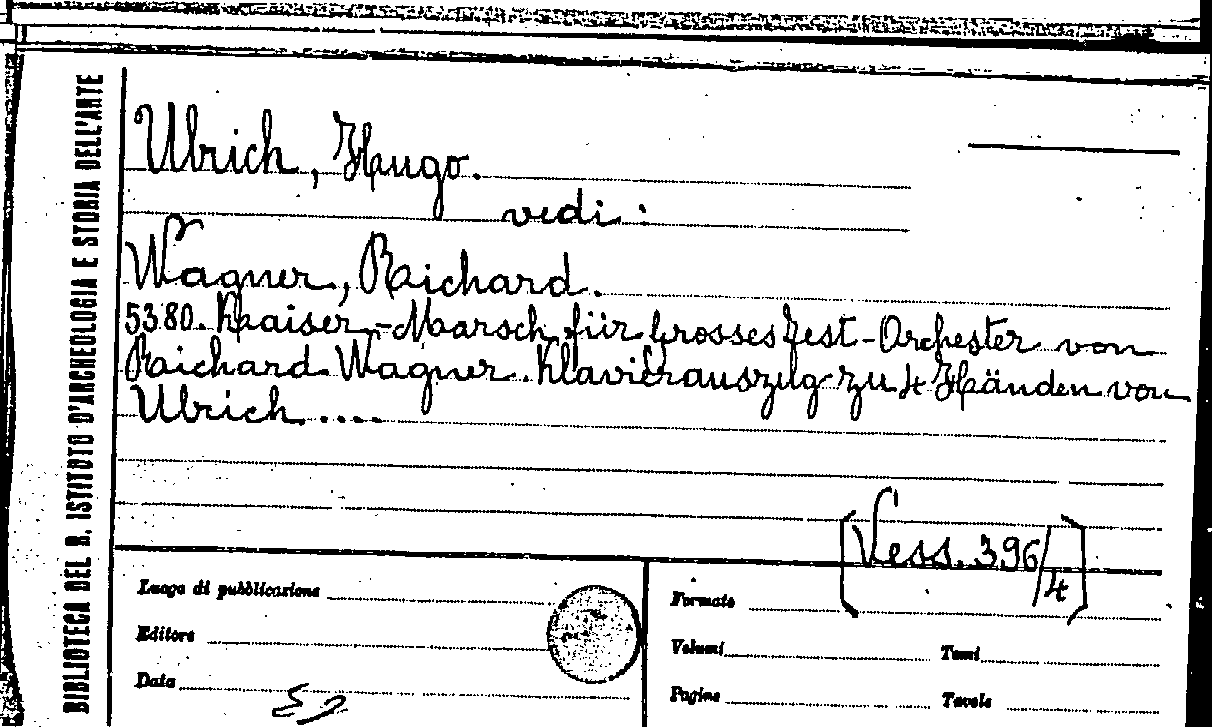 BIBLIOTECA DEL R. ISTITUTO D'ARCHEOLOGIA E STORIA DELL'ARTE
Ulrich, Hugo.
vedi:
Wagner, Richard.
5380. Kaiser-Marsch für grosses Fest-Orchester von
Richard Wagner. Klavierauszug zu 4 Händen von
Ulrich....
[Vess. 396/4]
Luogo di pubblicazione
Editore
Data
Formato
Volumi Tomi
Pagine Tavole